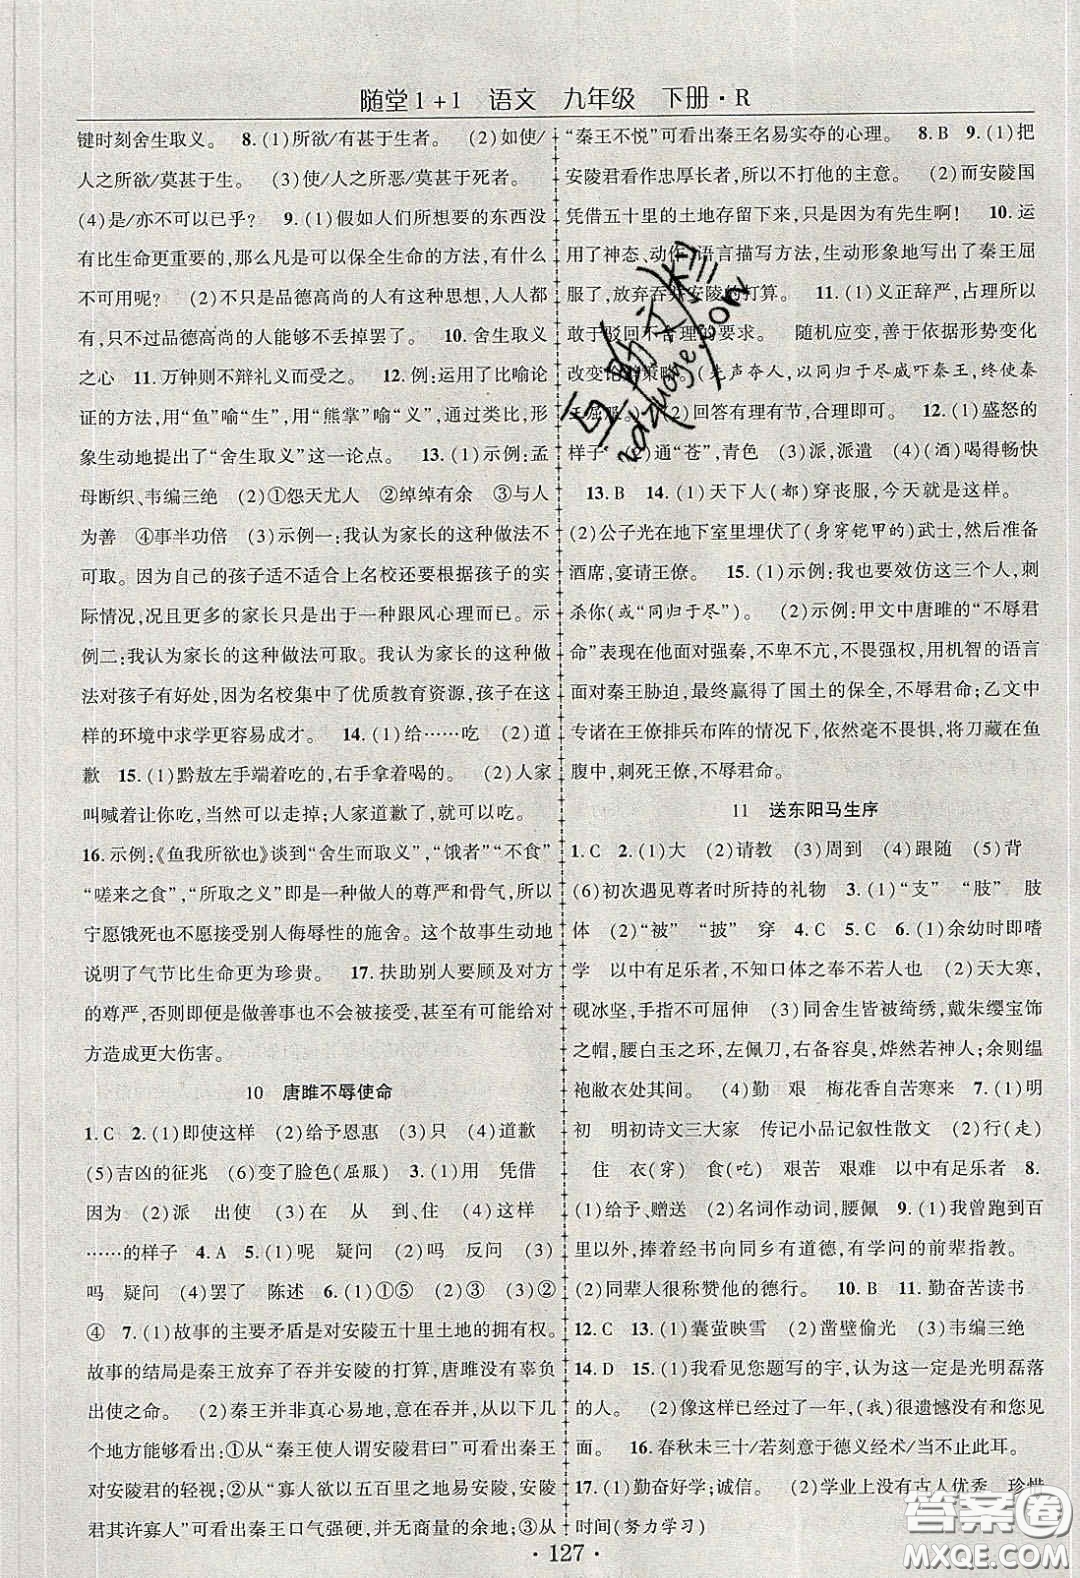 随堂1+1 语文 九年级 下册·R
键时刻舍生取义。 8.(1)所欲/有甚于生者。 (2)如使/
人之所欲/莫甚于生。 (3)使/人之所恶/莫甚于死者。
(4)是/亦不可以已乎? 9.(1)假如人们所想要的东西没
有比生命更重要的,那么凡是可以保全生命的方法,有什么
不可用呢? (2)不只是品德高尚的人有这种思想,人人都
有,只不过品德高尚的人能够不丢掉罢了。 10.舍生取义
之心 11.万钟则不辩礼义而受之。 12.例:运用了比喻论
证的方法,用“鱼”喻“生”,用“熊掌”喻“义”,通过类比,形
象生动地提出了“舍生取义”这一论点。 13.(1)示例:孟
母断织、韦编三绝 (2)①怨天尤人 ②绰绰有余 ③与人
为善 ④事半功倍 (3)示例一:我认为家长的这种做法不
可取。因为自己的孩子适不适合上名校还要根据孩子的实
际情况,况且更多的家长只是出于一种跟风心理而已。示
例二:我认为家长的这种做法可取。我认为家长的这种做
法对孩子有好处,因为名校集中了优质教育资源,孩子在这
样的环境中求学更容易成才。 14.(1)给……吃 (2)道
歉 15.(1)黔敖左手端着吃的,右手拿着喝的。 (2)人家
叫喊着让你吃,当然可以走掉;人家道歉了,就可以吃。
16.示例:《鱼我所欲也》谈到“舍生而取义”,“饿者”“不食”
“嗟来之食”,“所取之义”即是一种做人的尊严和骨气,所以
宁愿饿死也不愿接受别人侮辱性的施舍。这个故事生动地
说明了气节比生命更为珍贵。 17.扶助别人要顾及对方
的尊严,否则,你的自以为是的做善事也不会被接受,会给对
方造成更大伤害。
10 唐雎不辱使命
1.C 2.(1)即使这样 (2)给予恩惠 (3)只 (4)道歉
(5)吉凶的征兆 (6)变了脸色(屈服) 3.(1)用 凭借
因为 (2)派 出使 (3)在 从 到、住 (4)这样
……的样子 4.A 5.(1)呢 疑问 (2)吗 反问 (3)
吗 疑问 (4)罢了 陈述 6.(1)①⑤ (2)③ (3)②
④ 7.(1)故事的主要矛盾是对安陵五十里土地的拥有权。
故事的结局是秦王放弃了吞并安陵的打算。唐雎没有辜负
出使之命。 (2)秦王并非真心易地,意在吞并,以下
几个地方能够看出:①从“秦王使人谓安陵君曰”可看出秦王
对安陵君的轻视;②从“寡人欲以五百里之地易安陵,安陵
君其许寡人”可看出秦王口气强硬,并无商量的余地;③从
“秦王不悦”可看出秦王名易实夺的心理。 8.B 9.(1)把
安陵君看作忠厚长者,所以不打他的主意。 (2)而安陵国
凭借五十里的土地存留下来,只是因为有先生啊! 10.运
用了神态、动作、语言描写方法,生动形象地写出了秦王屈
服了,放弃吞并安陵的打算。 11.(1)义正辞严,占理所以
敢于驳回不合理的要求。 随机应变,善于依据形势变化
改变化解策略。(先声夺人,以同归于尽威吓秦王,使秦
王屈服。) (2)回答有理有节,合理即可。 12.(1)盛怒的
样子 (2)通“苍”,青色 (3)派,派遣 (4)(酒)喝得畅快
13.B 14.(1)天下人(都)穿丧服,今天就是这样。
(2)公子光在地下室里埋伏了(身穿铠甲的)武士,然后准备
酒席,宴请王僚。 15.(1)示例:我也要效仿这三个人,刺
杀你(或“同归于尽”)。 (2)示例:甲文中唐雎的“不辱君
命”表现在他面对强秦,不卑不亢,不畏强暴,用机智的语言
面对秦王胁迫,最终赢得了国土的保全,不辱君命;乙文中
专诸在王僚排兵布阵的情况下,依然毫不畏惧,将刀藏在鱼
腹中,刺死王僚,不辱君命。
11 送东阳马生序
1.C 2.(1)大 (2)请教 (3)周到 (4)跟随 (5)背
(6)初次遇见尊者时所持的礼物 3.(1)“支” “肢” 肢
体 (2)“被” “披” 穿 4.C 5.C 6.(1)余幼时即嗜
学 以中有足乐者,不知口体之奉不若人也 (2)天大寒,
砚冰坚,手指不可屈伸 (3)同舍生皆被绮绣,戴朱缨宝饰
之帽,腰白玉之环,左佩刀,右备容臭,烨然若神人;余则缊
袍敝衣处其间 (4)勤 艰 梅花香自苦寒来 7.(1)明
初 明初诗文三大家 传记小品记叙性散文 (2)行(走)
住 衣(穿) 食(吃) 艰苦 艰难 以中有足乐者 8.
(1)给予、赠送 (2)名词作动词,腰佩 9.(1)我曾跑到百
里以外,捧着经书向同乡有道德、有学问的前辈指教。
(2)同辈人很称赞他的德行。 10.B 11.勤奋苦读书
12.C 13.(1)囊萤映雪 (2)凿壁偷光 (3)韦编三绝
14.D 15.(1)我看见您题写的字,认为这一定是光明磊落
的人。 (2)像这样已经过了一年,(我)很遗憾没有和您见
面。 16.春秋未三十/若刻意于德义经术/当不止此耳。
17.(1)勤奋好学;诚信。 (2)学业上没有古人优秀 珍惜
时间(努力学习)
互助文档
hdzuoye.com
答案圈
MXQE.COM
·127·